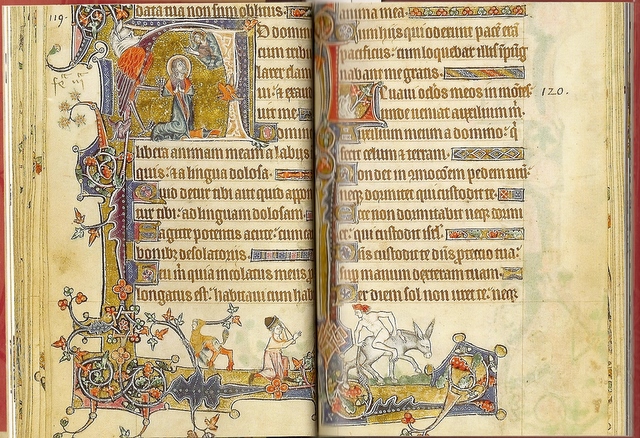 119.
data mea non sum oblitus.
D domin
cum tribu
laret clam
ui: & exaud
uit me
Domine
libera animam meam a labijs
quis: & a lingua dolosa.
Quid detur tibi aut quid appo
tur tibi: ad linguam dolosam.
Sagitte potentis acute: cum ca
bonibz desolatorijs.
Heu m quia incolatus meus p
longatus est: habitaui cum hab
anima mea.
Cum hijs qui oderunt pacem erā
pacificus: cum loquebar illis īpug
nabant me gratis.
Leuaui oculos meos in montes
unde ueniat auxilium m.
Auxilium meum a domino: q
fecit celum & terram.
Non det in cōmocōem pedem tuū:
neqz dormitet qui custodit te.
Ecce non dormitabit neqz dormi
et: qui custodit isrl.
Dñs custodit te dñs protectio tua:
sup manum dexteram tuam.
Per diem sol non uret te: neqz
120.